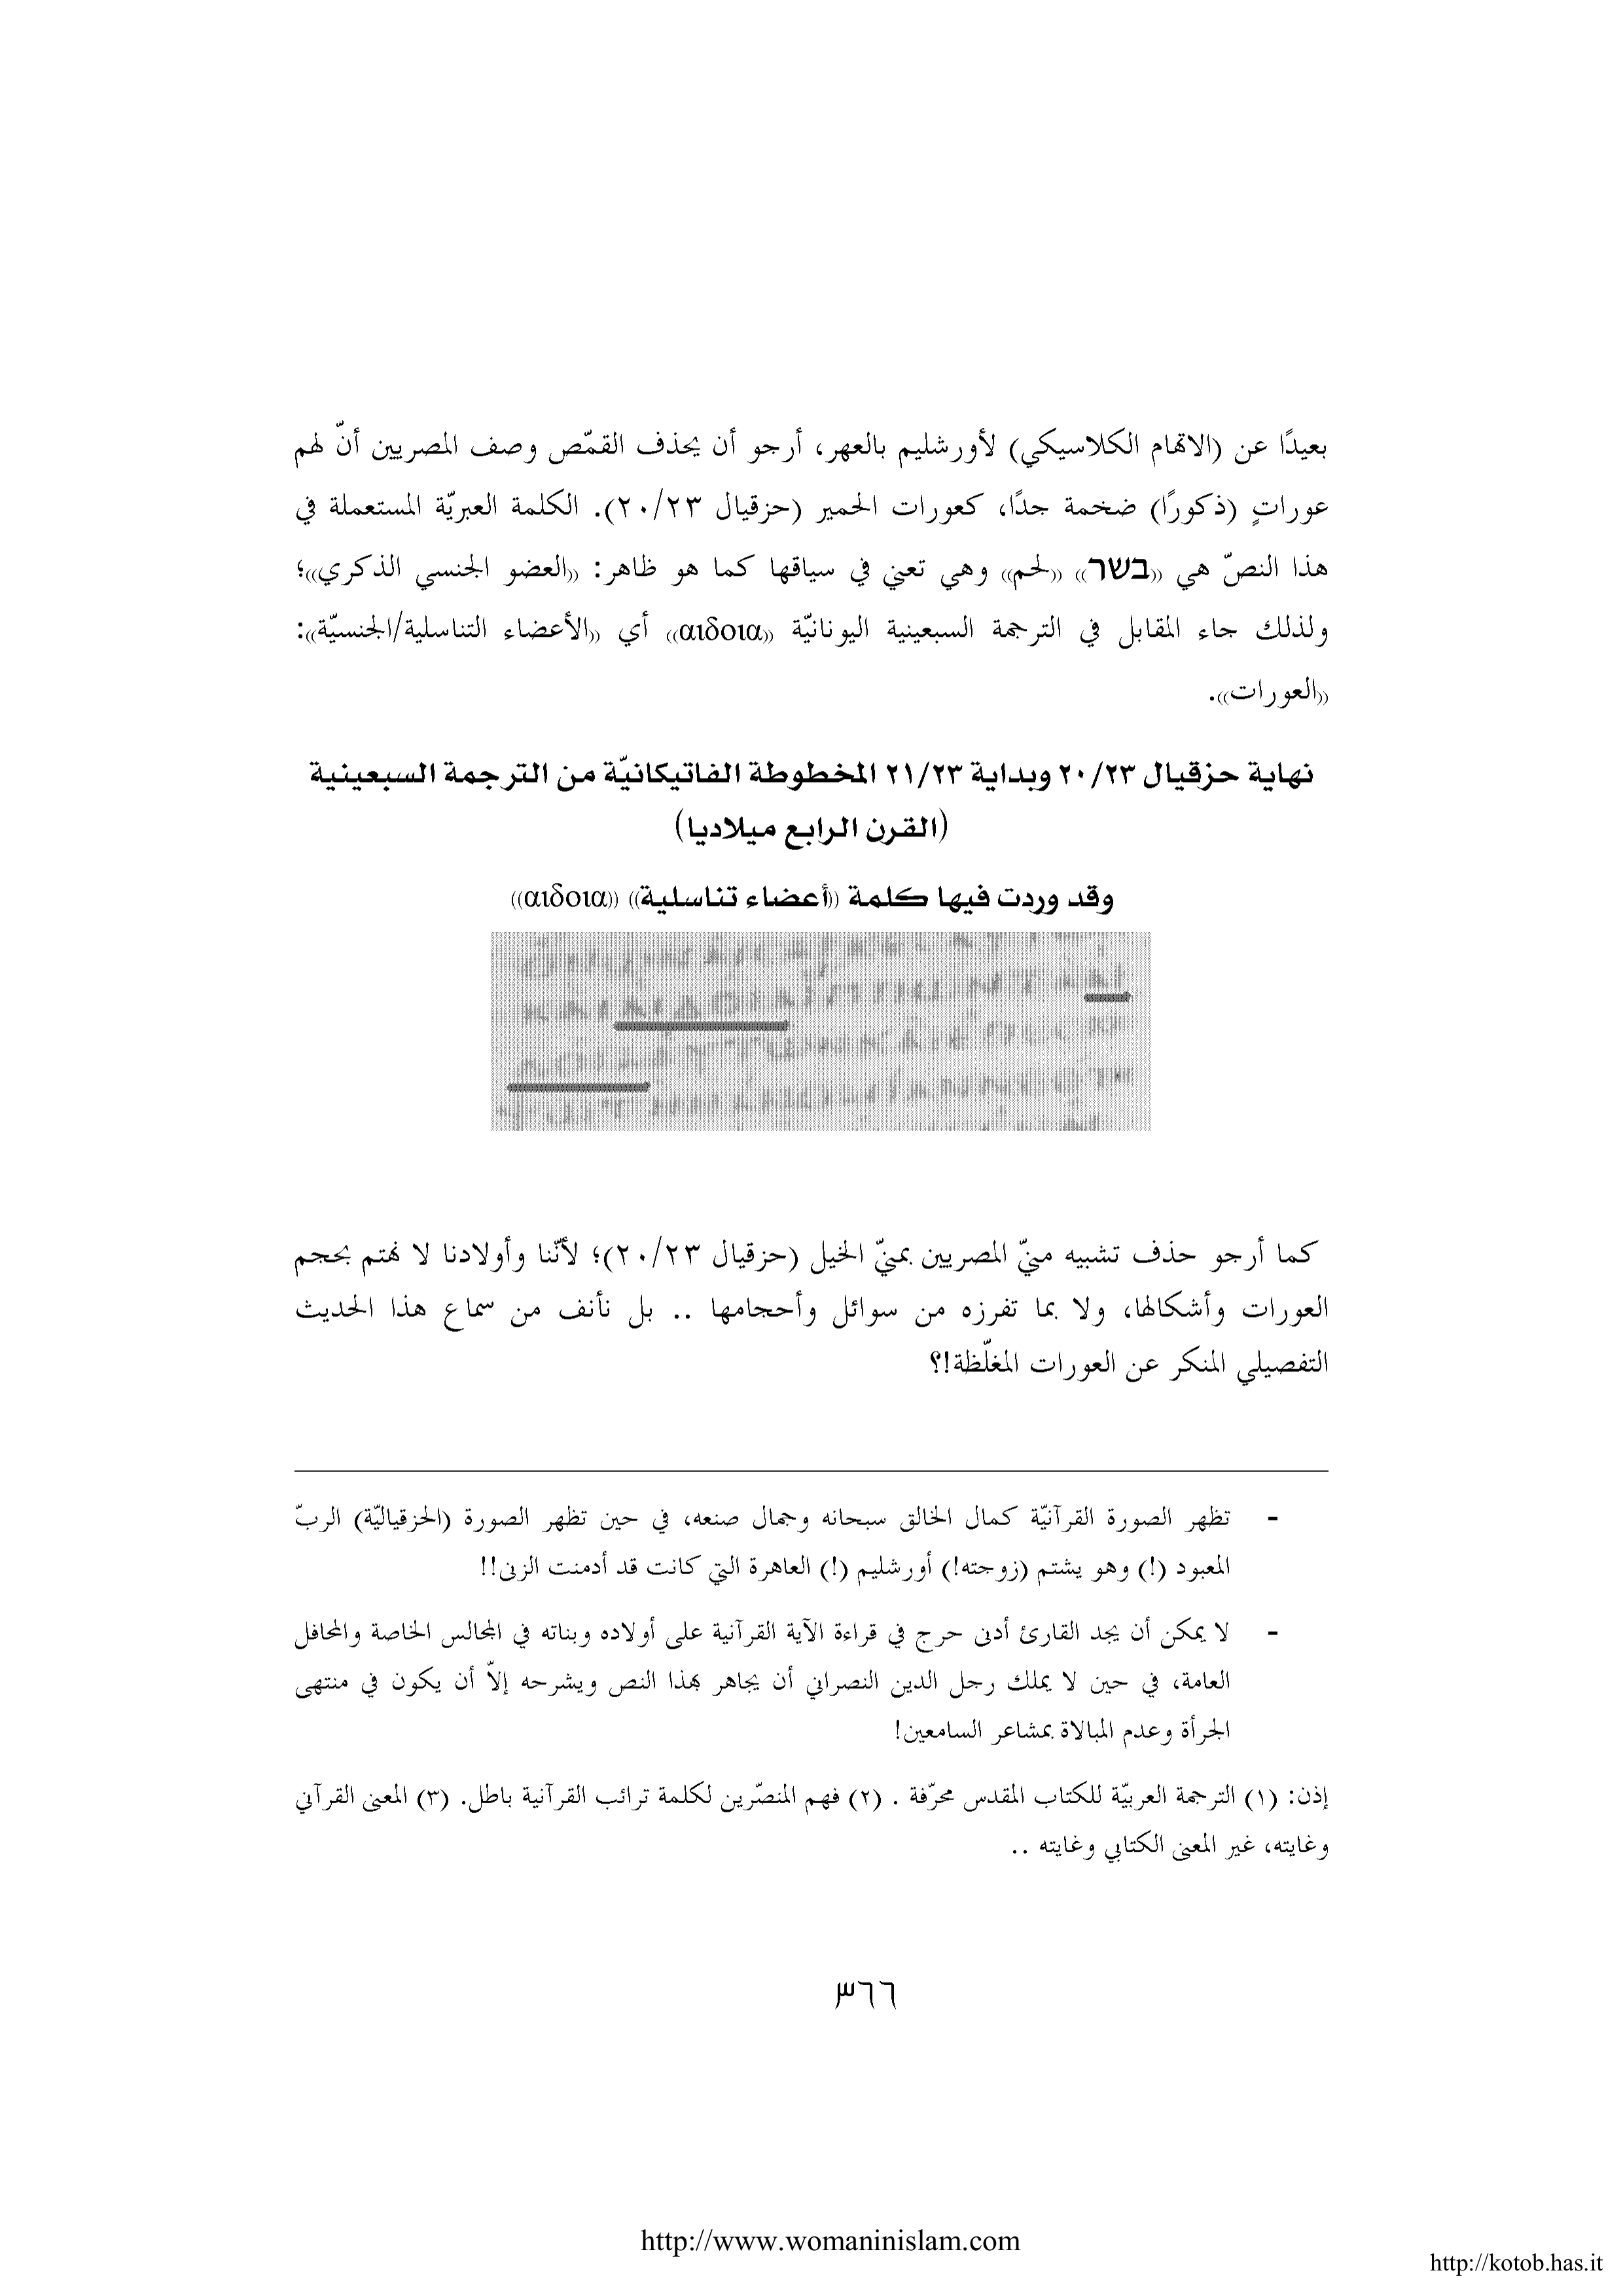 بعيدًا عن (الاتهام الكلاسيكي) لأورشليم بالعهر، أرجو أن يحذف القمّص وصف المصريين أنّ لهم
عوراتٍ (ذكورًا) ضخمة جدًا، كعورات الحمير (حزقيال ٢٠/٢٣). الكلمة العبريّة المستعملة في
هذا النصّ هي ((בשר)) ((لحم)) وهي تعني في سياقها كما هو ظاهر: ((العضو الجنسي الذكري))؛
ولذلك جاء المقابل في الترجمة السبعينية اليونانيّة ((αιδοια)) أي ((الأعضاء التناسلية/الجنسيّة)):
((العورات)).
نهاية حزقيال ٢٠/٢٣ وبداية ٢١/٢٣ المخطوطة الفاتيكانيّة من الترجمة السبعينية
(القرن الرابع ميلاديا)
وقد وردت فيها كلمة ((أعضاء تناسلية)) ((αιδοια))
كما أرجو حذف تشبيه منيّ المصريين بمنيّ الخيل (حزقيال ٢٠/٢٣)؛ لأنّنا وأولادنا لا نهتم بحجم
العورات وأشكالها، ولا بما تفرزه من سوائل وأحجامها .. بل نأنف من سماع هذا الحديث
التفصيلي المنكر عن العورات المغلّظة!؟
- تظهر الصورة القرآنيّة كمال الخالق سبحانه وجمال صنعه، في حين تظهر الصورة (الحزقياليّة) الربّ
المعبود (!) وهو يشتم (زوجته!) أورشليم (!) العاهرة التي كانت قد أدمنت الزنى!!
- لا يمكن أن يجد القارئ أدنى حرج في قراءة الآية القرآنية على أولاده وبناته في المجالس الخاصة والمحافل
العامة، في حين لا يملك رجل الدين النصراني أن يجاهر بهذا النص ويشرحه إلاّ أن يكون في منتهى
الجرأة وعدم المبالاة بمشاعر السامعين!
إذن: (١) الترجمة العربيّة للكتاب المقدس محرّفة . (٢) فهم المنصّرين لكلمة ترائب القرآنية باطل. (٣) المعنى القرآني
وغايته، غير المعنى الكتابي وغايته ..
٣٦٦
http://www.womaninislam.com
http://kotob.has.it